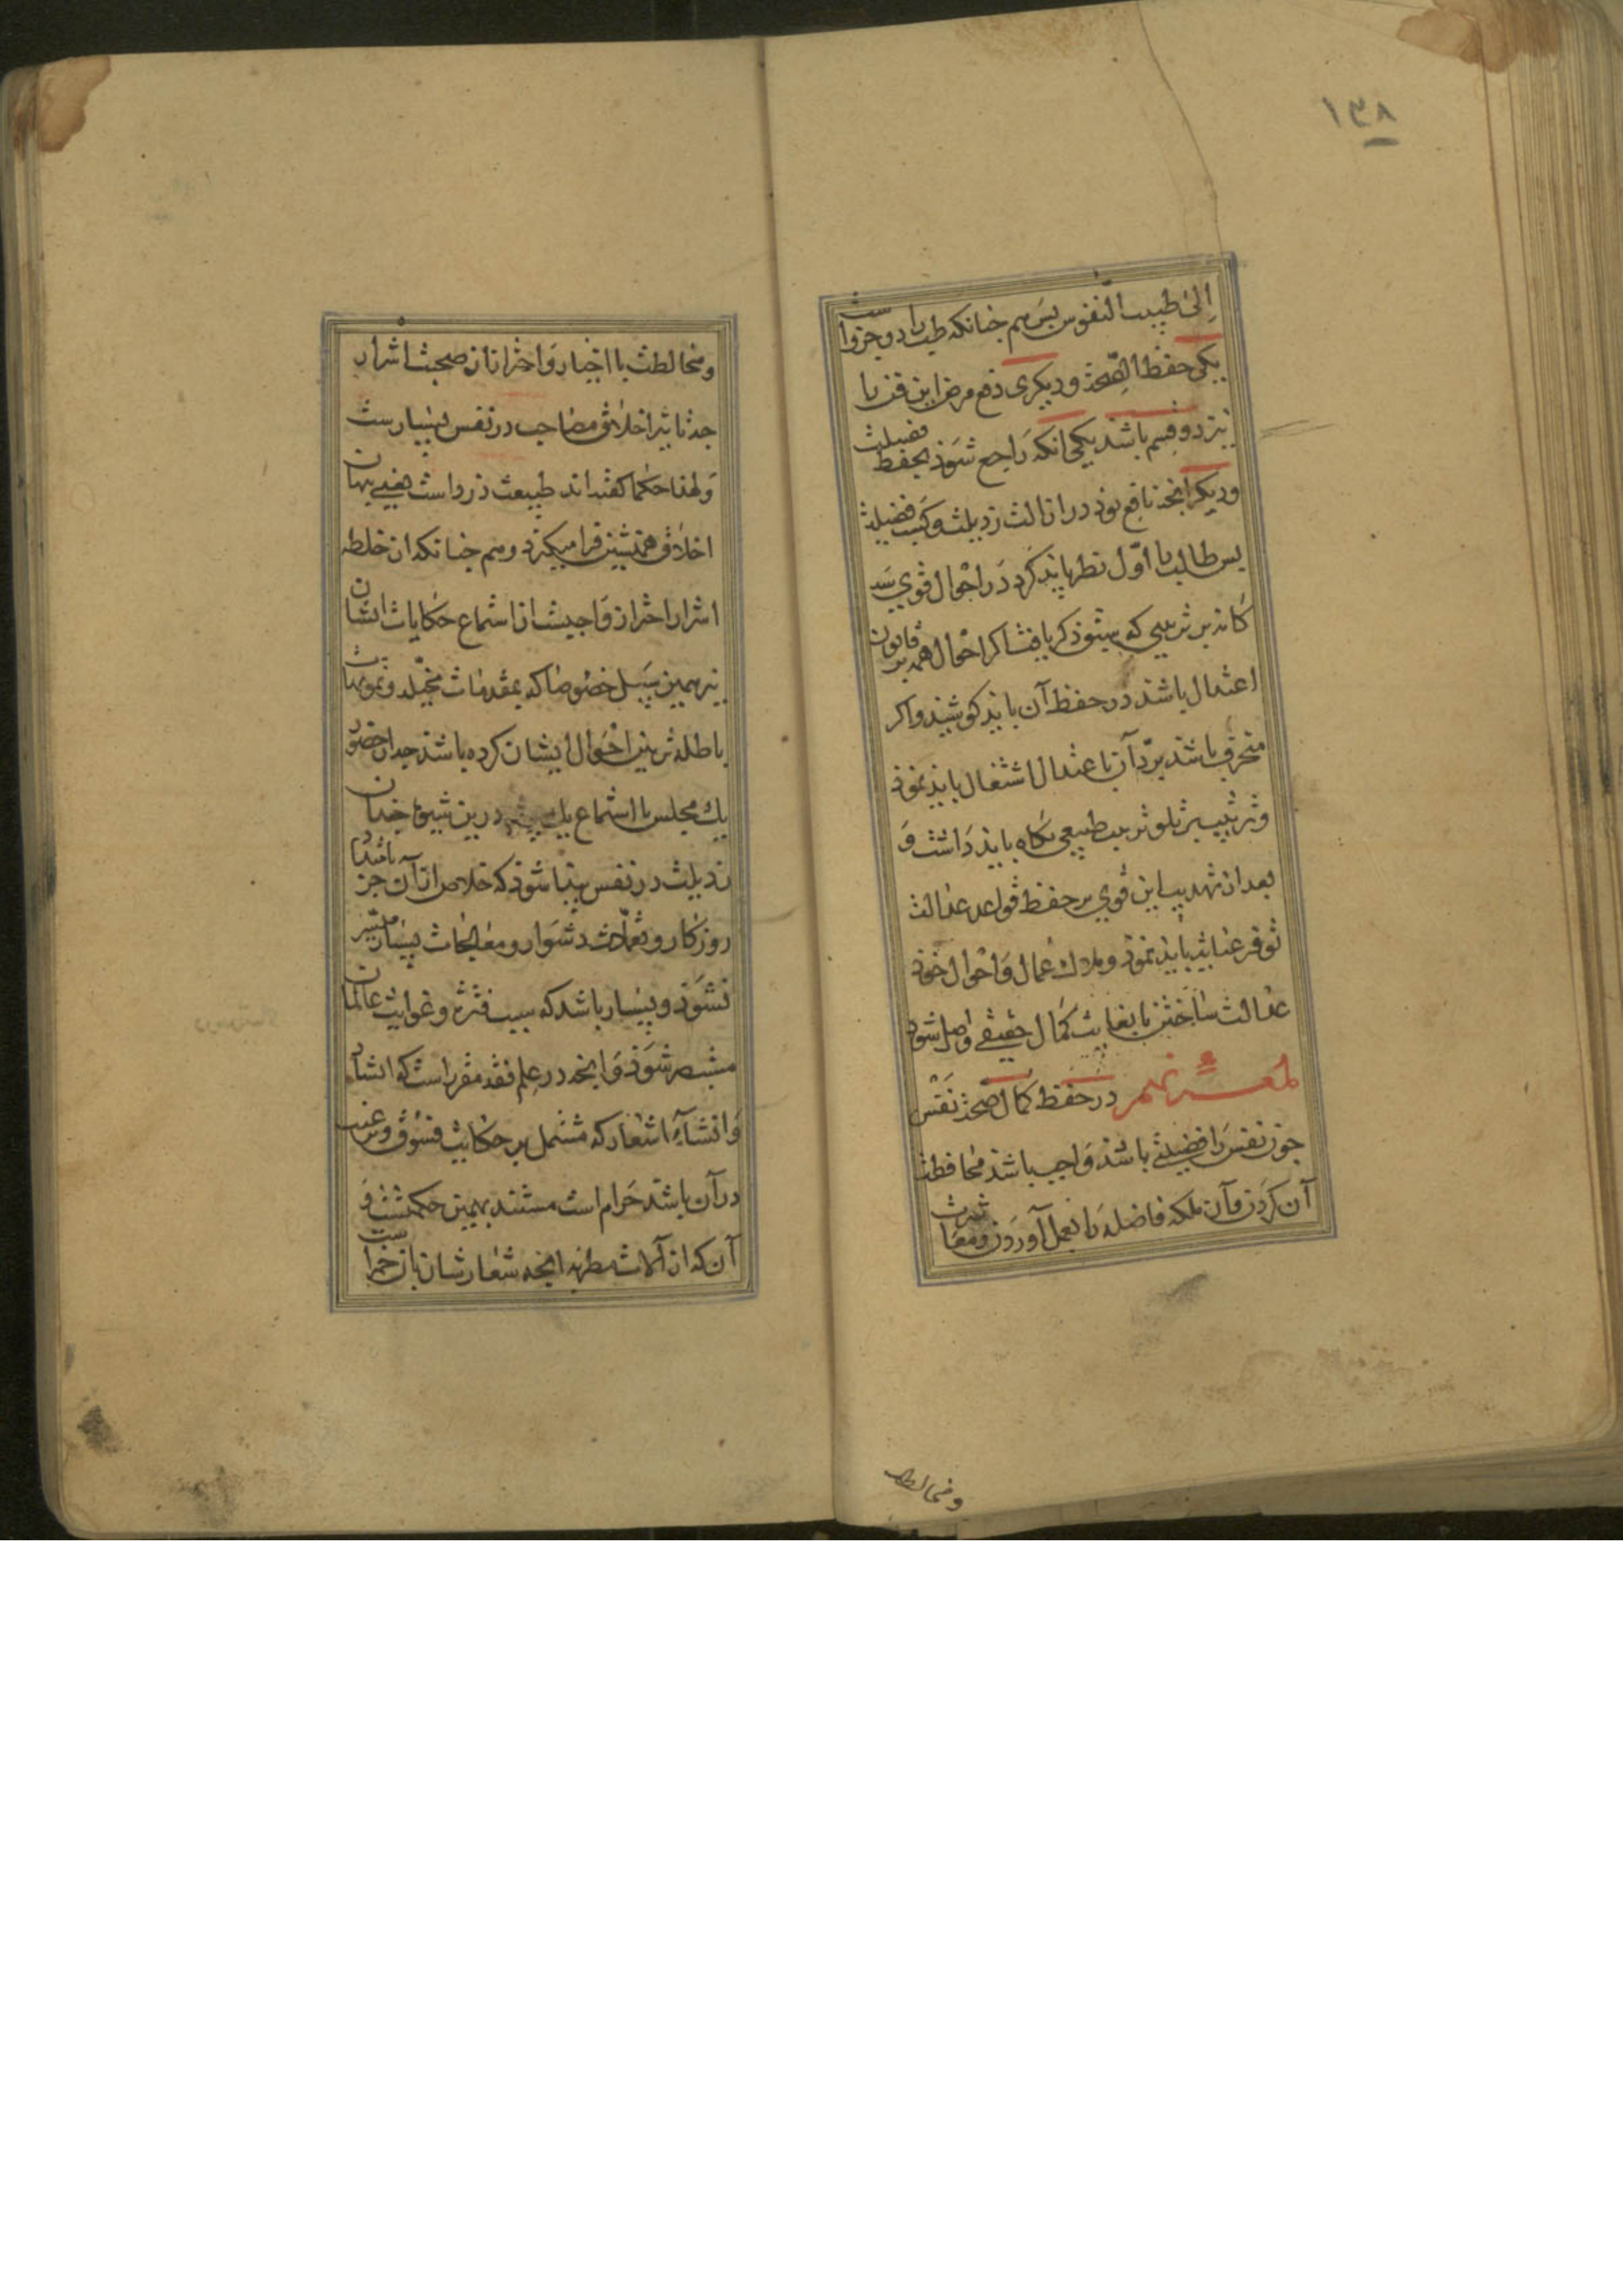 ١٣٨
الی طبیب النفوس پس هم جنانکه طب را دو جزواست
یکی حفظ الصحة و دیکری دفع مرض این فن را
نیز دو قسم باشد یکی انکه راجع شوذ بحفظ فضیلت
و دیکر انجه نافع بوذ در ازالت رذیلت و کسب فضیلت
بس طالب را اول نظر باید کرد در احوال قوی سه
کانه بر ترتیبی که سبق ذکر یافت اکر احوال همه بر قانون
اعتدال باشد در حفظ آن بایذ کوشید و اکر
منحرف باشد بردّ آن با عتدال اشتغال بایذ نموذ
و ترتیب بر تلو ترتیب طبیعی نکاه بایذ داشت و
بعد از تهذیب این قوی بر حفظ قواعد عدالت
توفر عنایت بایذ نموذ و ملاک اعمال و احوال خوذ
عدالت ساختن تا بغایت کمال حقیقی واصل شوذ
لمعـــۀ نهم در حفظ کمال صحة نفس
جون نفس را فضیلتی باشذ واجب باشذ محافظت
آن کردن و آن ملکه فاضله را بعمل آوردن و معاشرت
و مخالطت
و مخالطت با اخیار و احتراز از صحبت اشرار
جه تاثیر اخلاق مصاحب در نفس بسیارست
و لهذا حکما کفته اند طبیعت دزد است یعنی بنهان
اخلاق همنشین فرا میکیرد و هم جنانکه از خلطه
اشرار احتراز واجبست از استماع حکایات ایشان
نیز همین سبیل خصوصا که بمقدمات مخیله و تمویهات
باطله تزیین احوال ایشان کرده باشند جه از حضور
یک مجلس با استماع یک بیت درین شیوه جندان
رذیلت در نفس بیدا شوذ که خلاص از آن جز بامتداد
روزکار و تعملات دشوار و معالجات بسیار میسر
نشوذ و بسیار باشد که سبب فترت و غوایت عالمان
مستبصر شوذ و انجه در علم فقه مقرر است که انشاد
و انشاء اشعار که مشتمل بر حکایت فسوق و ترغیب
در آن باشد حرام است مستند بهمین حکمتست و
آن که از آلات مطربه انجه شعار شاربان خمرست